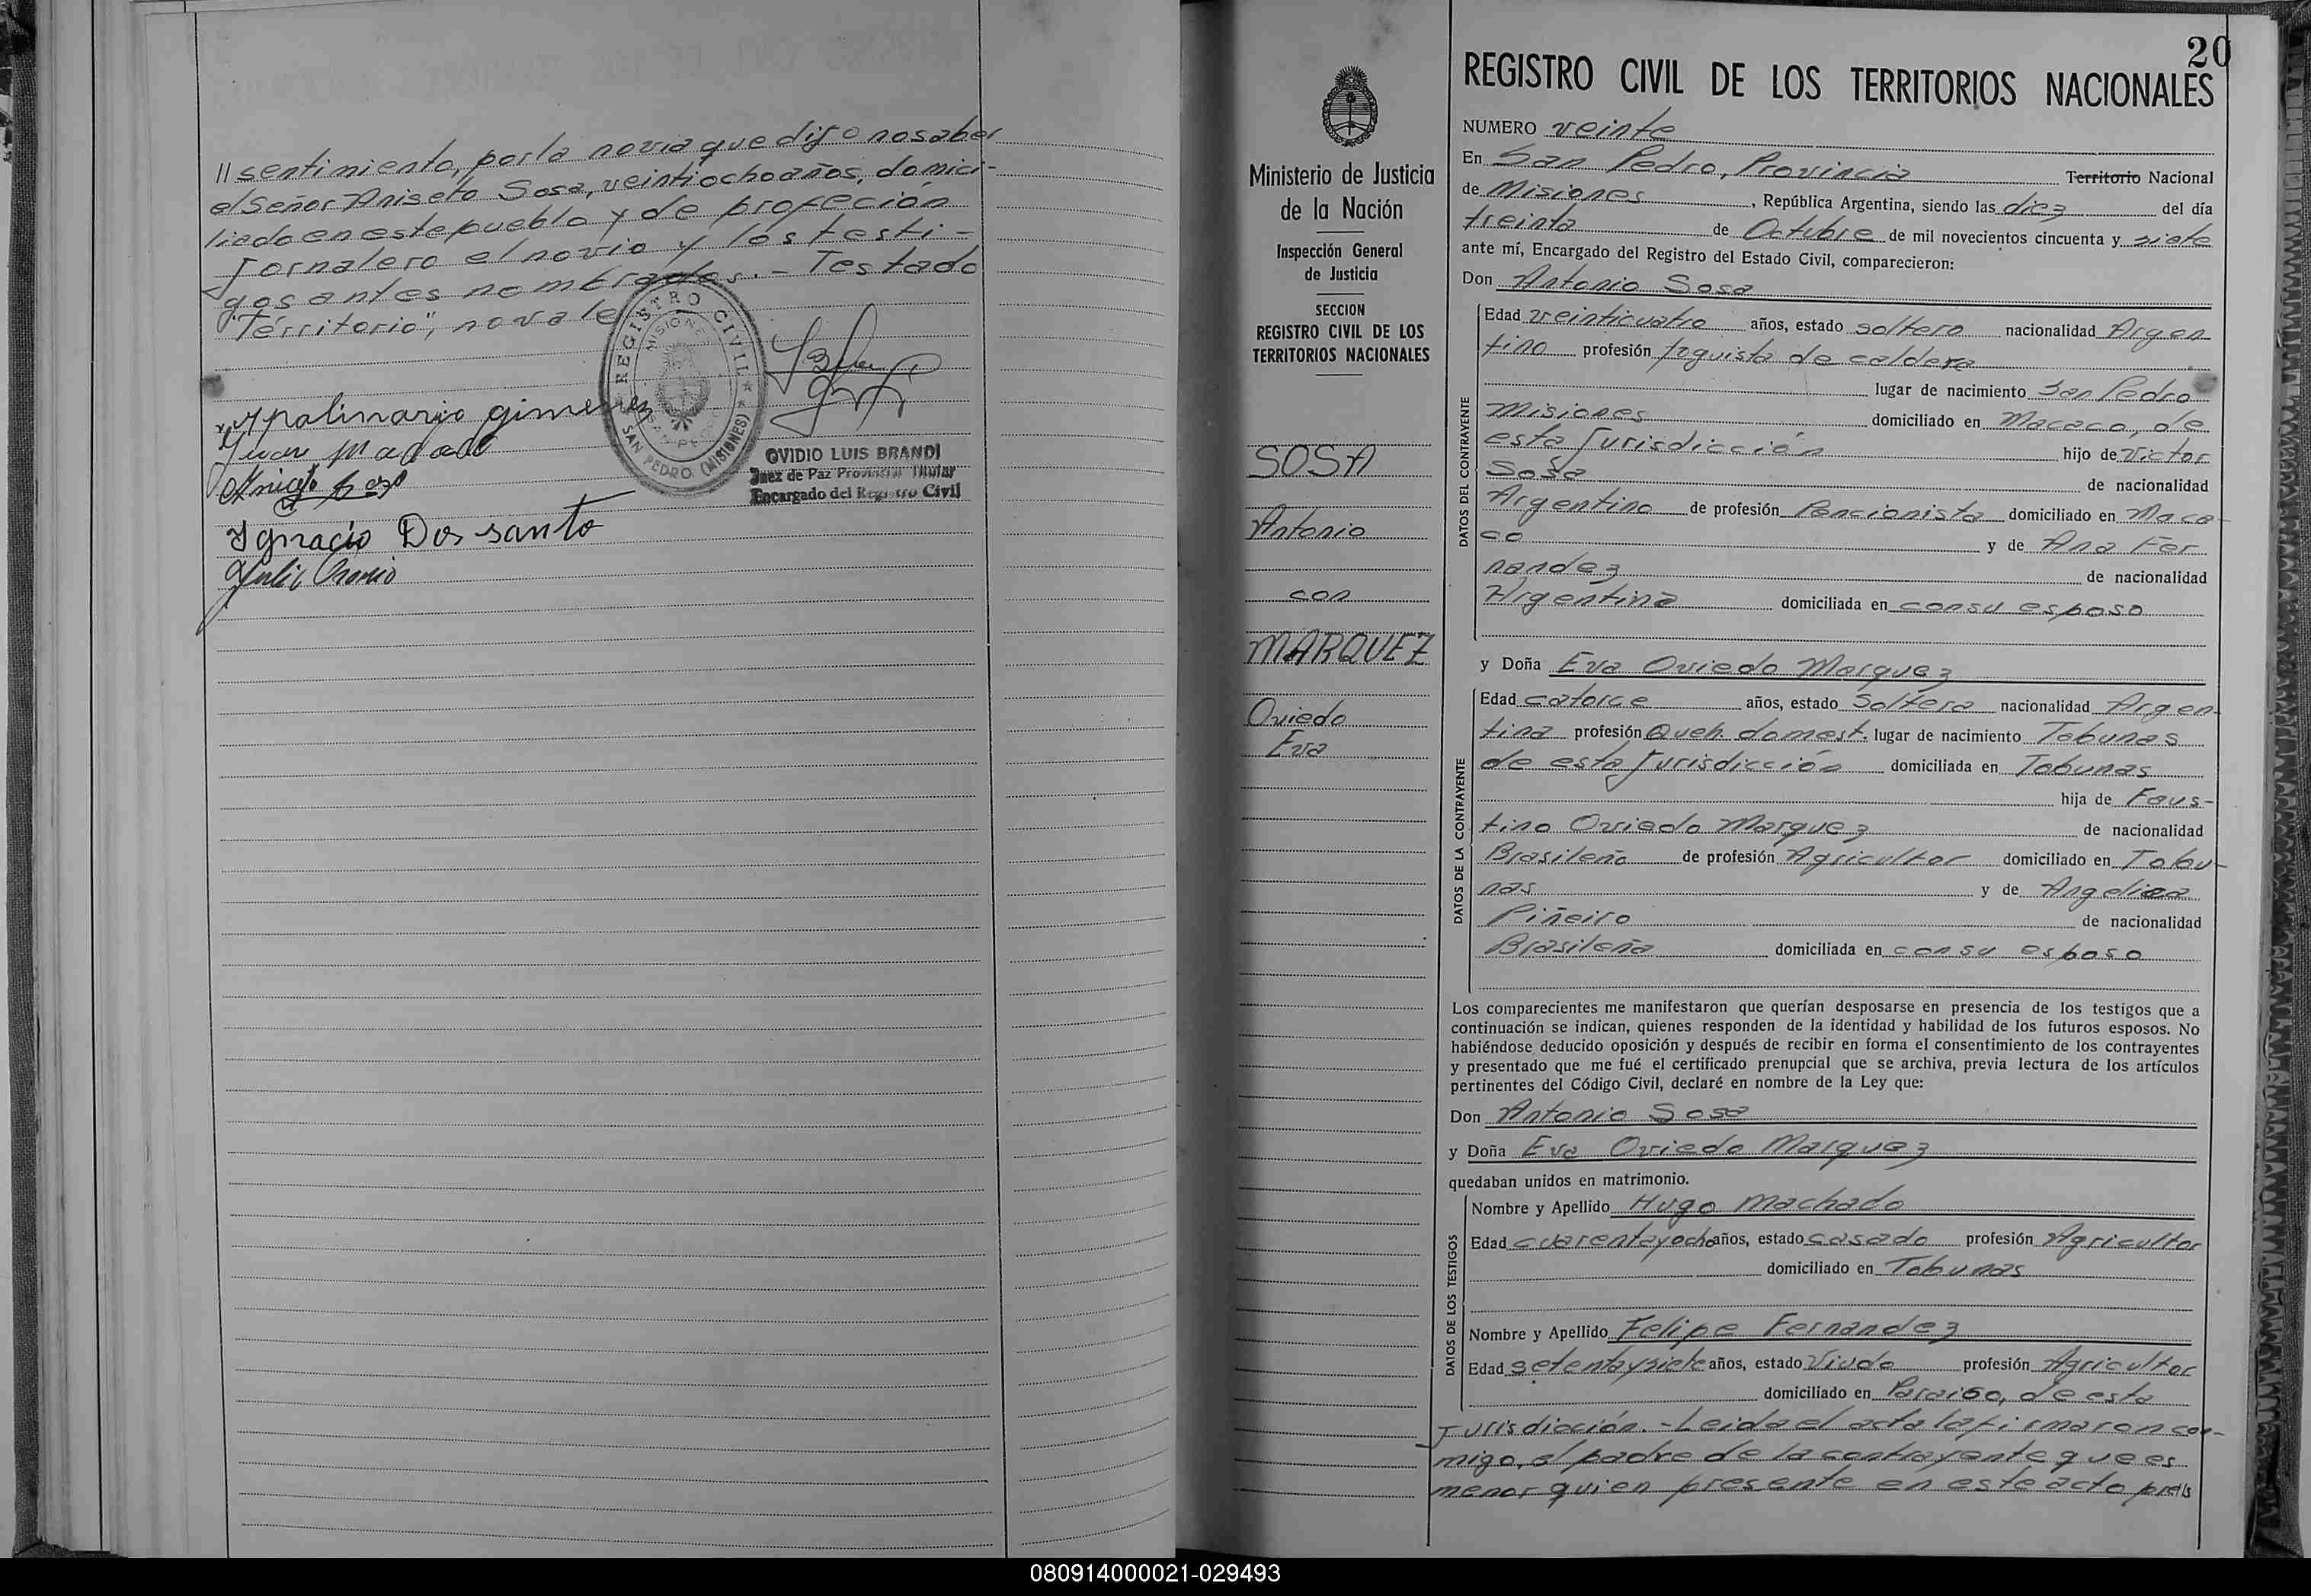 // sentimiento, por la novia que dijo no saber
el Señor Aniseto Sosa, veintiocho años, domici-
liado en este pueblo y de profeción
Jornalero el novio y los testi-
gos antes nombrados.- Testado
"Territorio", no vale
REGISTRO CIVIL
MISIONES
SAN PEDRO
SAN PEDRO (MISIONES)
Apolinario gimenez
OVIDIO LUIS BRANDI
Juez de Paz Provincial Titular
Encargado del Registro Civil
Ignacio Dos santo
20
REGISTRO CIVIL DE LOS TERRITORIOS NACIONALES
Ministerio de Justicia
de la Nación
Inspección General
de Justicia
SECCION
REGISTRO CIVIL DE LOS
TERRITORIOS NACIONALES
SOSA
Antonio
con
MARQUEZ
Oviedo
Eva
NUMERO veinte
En San Pedro, Provincia Territorio Nacional
de Misiones, República Argentina, siendo las diez del día
treinta de Octubre de mil novecientos cincuenta y siete
ante mí, Encargado del Registro del Estado Civil, comparecieron:
Don Antonio Sosa
DATOS DEL CONTRAYENTE
Edad veinticuatro años, estado soltero nacionalidad Argen
tino profesión foguista de caldera
lugar de nacimiento San Pedro
Misiones domiciliado en Macaco, de
esta Jurisdicción hijo de Victor
Sosa de nacionalidad
Argentino de profesión Pencionista domiciliado en Maca-
co y de Ana Fer
nandez de nacionalidad
Argentina domiciliada en con su esposo
y Doña Eva Oviedo Marquez
DATOS DE LA CONTRAYENTE
Edad catorce años, estado Soltera nacionalidad Argen-
tina profesión Queh. domest. lugar de nacimiento Tobunas
de esta Jurisdicción domiciliada en Tobunas
hija de Faus-
tino Oviedo Marquez de nacionalidad
Brasileño de profesión Agricultor domiciliado en Tobu-
nas y de Angelica
Piñeiro de nacionalidad
Brasileña domiciliada en con su esposo
Los comparecientes me manifestaron que querían desposarse en presencia de los testigos que a
continuación se indican, quienes responden de la identidad y habilidad de los futuros esposos. No
habiéndose deducido oposición y después de recibir en forma el consentimiento de los contrayentes
y presentado que me fué el certificado prenupcial que se archiva, previa lectura de los artículos
pertinentes del Código Civil, declaré en nombre de la Ley que:
Don Antonio Sosa
y Doña Eva Oviedo Marquez
quedaban unidos en matrimonio.
DATOS DE LOS TESTIGOS
Nombre y Apellido Hugo Machado
Edad cuarentayocho años, estado casado profesión Agricultor
domiciliado en Tobunas
Nombre y Apellido Felipe Fernandez
Edad setentaysiete años, estado Viudo profesión Agricultor
domiciliado en Paraiso, de esta
Jurisdicción.- Leida el acta la firmaron con-
migo, el padre de la contrayente que es
menor quien presente en este acto
080914000021-029493